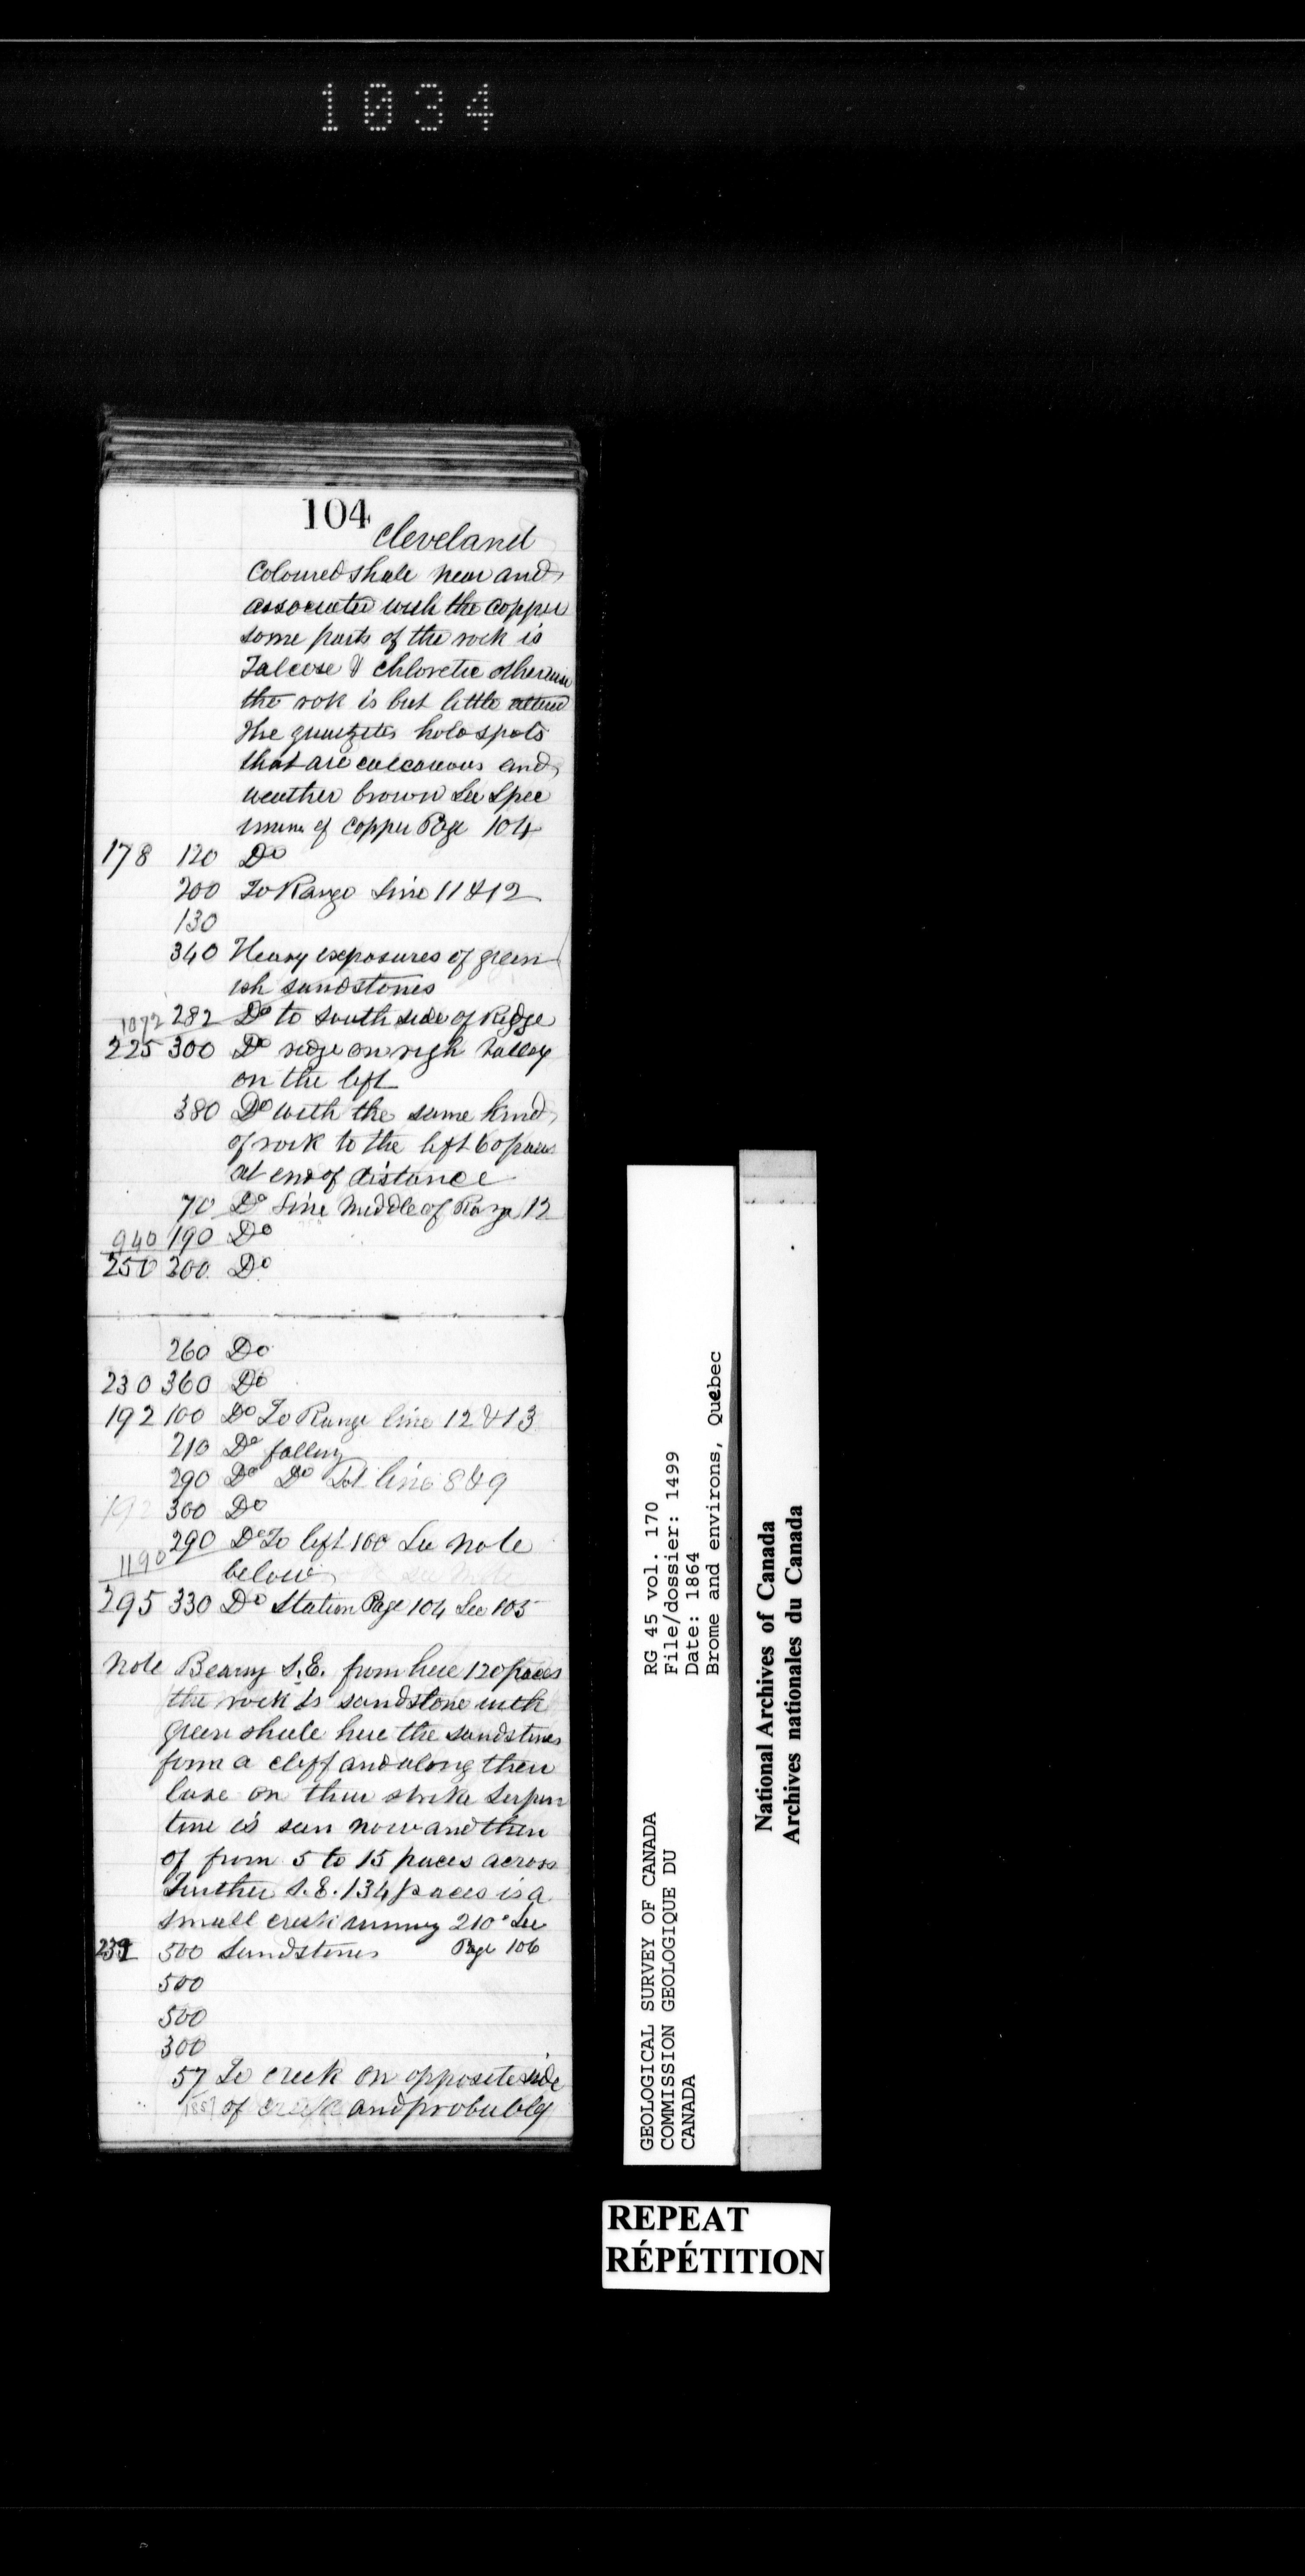 1034
104
Cleveland
Coloured shale near and
associated with the copper
some parts of the rock is
Talcose & chloretic otherwise
the rok is but little altered
The quartzites hold spots
that are calcareous and
weather brown See Spec
imen of copper Page 104
178 120 Do
200 To Range Line 11 & 12
130
340 Heavy exposures of green
ish sandstones
1072 282 Do to south side of Ridge
225 300 Do ridge on righ valley
on the left
380 Do with the same kind
of rock to the left 60 paces
at end of distance
70 Do Line Middle of Range 12
940 190 Do
250 200 Do
260 Do
230 360 Do
192 100 Do To Range line 12 & 13
210 Do falling
290 Do Do Lot line 8 & 9
192 300 Do
290 Do To left 100 See note
1190 below
295 330 Do Station Page 104 See 105
Note Bearing S.E. from here 120 paces
the rock is sandstone with
green shale here the sandstones
form a cliff and along their
base on their strike Serpen
tine is seen now and then
of from 5 to 15 paces across
Further S.E. 134 paces is a
small creek running 210° See
500 Sandstones Page 106
500
500
300
57 To creek on opposite side
1857 of creek and probably
GEOLOGICAL SURVEY OF CANADA
COMMISSION GEOLOGIQUE DU
CANADA
RG 45 vol. 170
File/dossier: 1499
Date: 1864
Brome and environs, Quebec
National Archives of Canada
Archives nationales du Canada
REPEAT
RÉPÉTITION